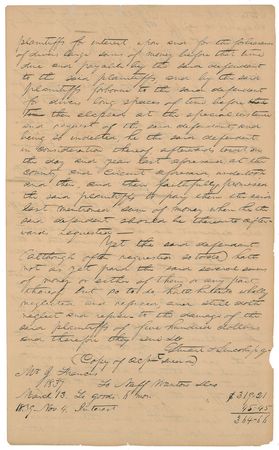 plaintiffs of interest upon and for the forbearance
of divers large sums of money before that time
due and payable by the said defendant
to the said plaintiffs, and by the said
plaintiffs forborne to the said defendant
for divers long spaces of time before
then elapsed at the special instance
and request of the said defendant and
being so indebted he the said defendant
in consideration thereof afterwards towit on
the day and year last aforesaid at the
county and Circuit aforesaid undertook
and then and there faithfully promised
the said plaintiffs to pay them the said
last mentioned sum of money when he the
said defendant should be thereunto after-
ward requested—
Yet the said defendant
(although often requested so to do) hath
not as yet paid the said several sums
of money or either of them or any part
thereof but so to do hath hitherto wholly
neglected and refused and still doth
neglect and refuse to the damage of the
said plaintiffs of five hundred dollars
and therefore they sue &c
Stuart & Lincoln p.q.
(Copy of acpt sued on)
Mr J. Francis
1839 To Neff Wanton &co
March 13. To goods 6 mos $319-21
1839. Nov 4. Interest 45-45
364-66